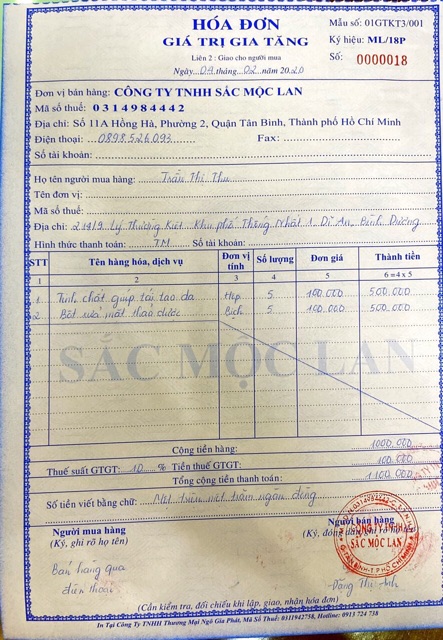 HÓA ĐƠN
GIÁ TRỊ GIA TĂNG
Liên 2: Giao cho người mua
Ngày 04 tháng 02 năm 2020
Mẫu số: 01GTKT3/001
Ký hiệu: ML/18P
Số: 0000018
Đơn vị bán hàng: CÔNG TY TNHH SẮC MỘC LAN
Mã số thuế: 0314984442
Địa chỉ: Số 11A Hồng Hà, Phường 2, Quận Tân Bình, Thành phố Hồ Chí Minh
Điện thoại: 0898526093 Fax:
Số tài khoản:
Họ tên người mua hàng: Trần Thị Thu
Tên đơn vị:
Mã số thuế:
Địa chỉ: 2419 Lý Thường Kiệt Khu phố Thống Nhất 1, Dĩ An, Bình Dương
Hình thức thanh toán: TM Số tài khoản:
STT Tên hàng hóa, dịch vụ Đơn vị tính Số lượng Đơn giá Thành tiền
1 2 3 4 5 6 = 4 x 5
1 Tinh chất giúp tái tạo da Hộp 5 100.000 500.000
2 Bột rửa mặt thảo dược Bịch 5 100.000 500.000
SẮC MỘC LAN
Cộng tiền hàng: 1000.000
Thuế suất GTGT: 10 % Tiền thuế GTGT: 100.000
Tổng cộng tiền thanh toán: 1.100.000
Số tiền viết bằng chữ: Một triệu một trăm ngàn đồng
Người mua hàng
(Ký, ghi rõ họ tên)
Bán hàng qua
điện thoại
Người bán hàng
(Ký, đóng dấu, ghi rõ họ tên)
CÔNG TY TNHH
SẮC MỘC LAN
Đặng Thị
(Cần kiểm tra, đối chiếu khi lập, giao, nhận hóa đơn)
In Tại Công Ty TNHH Thương Mại Ngô Gia Phát, Mã Số Thuế: 0311942758, Hotline: 0913 724 738